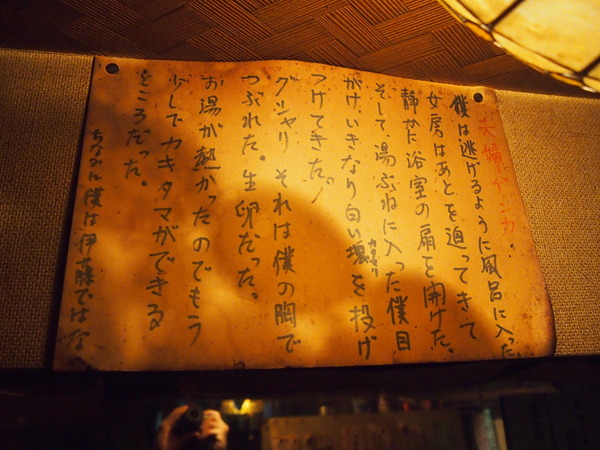 夫婦ゲンカ
僕は逃げるように風呂に入った。
女房はあとを追ってきて
静かに浴室の扇を開けた。
そして湯ぶねに入った僕目
がけいきなり白い塊を投げ
かたまり
つけてきた。
グシャリ それは僕の胸で
つぶれた。生卵だった。
お湯が熱かったのでもう
少しでカキタマができる
ところだった。
ちなみに僕は伊藤ではな